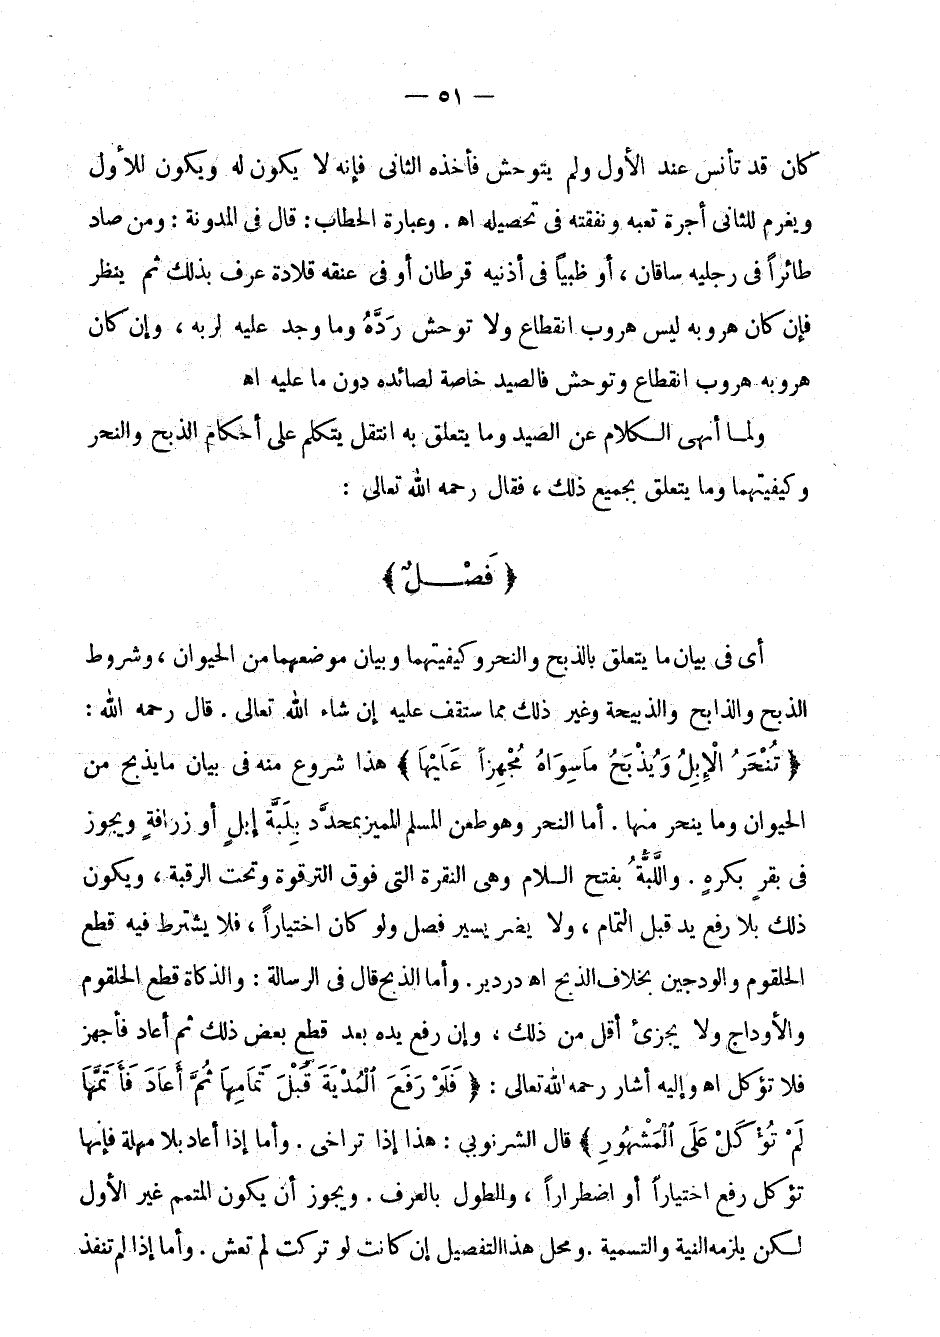 — ٥١ —
كان قد تأنس عند الأول ولم يتوحش فأخذه الثانى فإنه لا يكون له ويكون للأول
ويغرم للثانى أجرة تعبه ونفقته فى تحصيله اهـ . وعبارة الحطاب : قال فى المدونة : ومن صاد
طائراً فى رجليه ساقان ، أو ظبياً فى أذنيه قرطان أو فى عنقه قلادة عرف بذلك ثم ينظر
فإن كان هروبه ليس هروب انقطاع ولا توحش ردَّهُ وما وجد عليه لربه ، وإن كان
هروبه هروب انقطاع وتوحش فالصيد خاصة لصائده دون ما عليه اهـ
ولمـا أنهى الـكلام عن الصيد وما يتعلق به انتقل يتكلم على أحكام الذبح والنحر
وكيفيتهما وما يتعلق بجميع ذلك ، فقال رحمه الله تعالى :
﴿ فَصْــلٌ ﴾
أى فى بيان ما يتعلق بالذبح والنحر وكيفيتهما وبيان موضعهما من الحيوان ، وشروط
الذبح والذابح والذبيحة وغير ذلك مما ستقف عليه إن شاء الله تعالى . قال رحمه الله :
﴿ تُنْحَرُ الْإِبِلُ وَيُذْبَحُ مَاسِوَاهُ مُجْهِزاً عَلَيْهَا ﴾ هذا شروع منه فى بيان مايذبح من
الحيوان وما ينحر منها . أما النحر وهو طعن المسلم المميز بمحدَّد بِلَبَّة إبلٍ أو زرافةٍ ويجوز
فى بقرٍ بكرهٍ . واللَّبَّةُ بفتح الـلام وهى النقرة التى فوق الترقوة وتحت الرقبة ، ويكون
ذلك بلا رفع يد قبل التمام ، ولا يضر يسير فصل ولو كان اختياراً ، فلا يشترط فيه قطع
الحلقوم والودجين بخلاف الذبح اهـ دردير . وأما الذبح قال فى الرسالة : والذكاة قطع الحلقوم
والأوداج ولا يجزئ أقل من ذلك ، وإن رفع يده بعد قطع بعض ذلك ثم أعاد فأجهز
فلا تؤكل اهـ وإليه أشار رحمه الله تعالى : ﴿ فَلَوْ رَفَعَ الْمُدْيَةَ قَبْلَ تَمَامِهَا ثُمَّ أَعَادَ فَأَتَمَّهَا
لَمْ تُؤْكَلْ عَلَى الْمَشْهُورِ ﴾ قال الشرنوبي : هذا إذا تراخى . وأما إذا أعاد بلا مهلة فإنها
تؤكل رفع اختياراً أو اضطراراً ، والطول بالعرف . ويجوز أن يكون المتمم غير الأول
لـكن يلزمه النية والتسمية . ومحل هذا التفصيل إن كانت لو تركت لم تعش . وأما إذا لم تنفذ